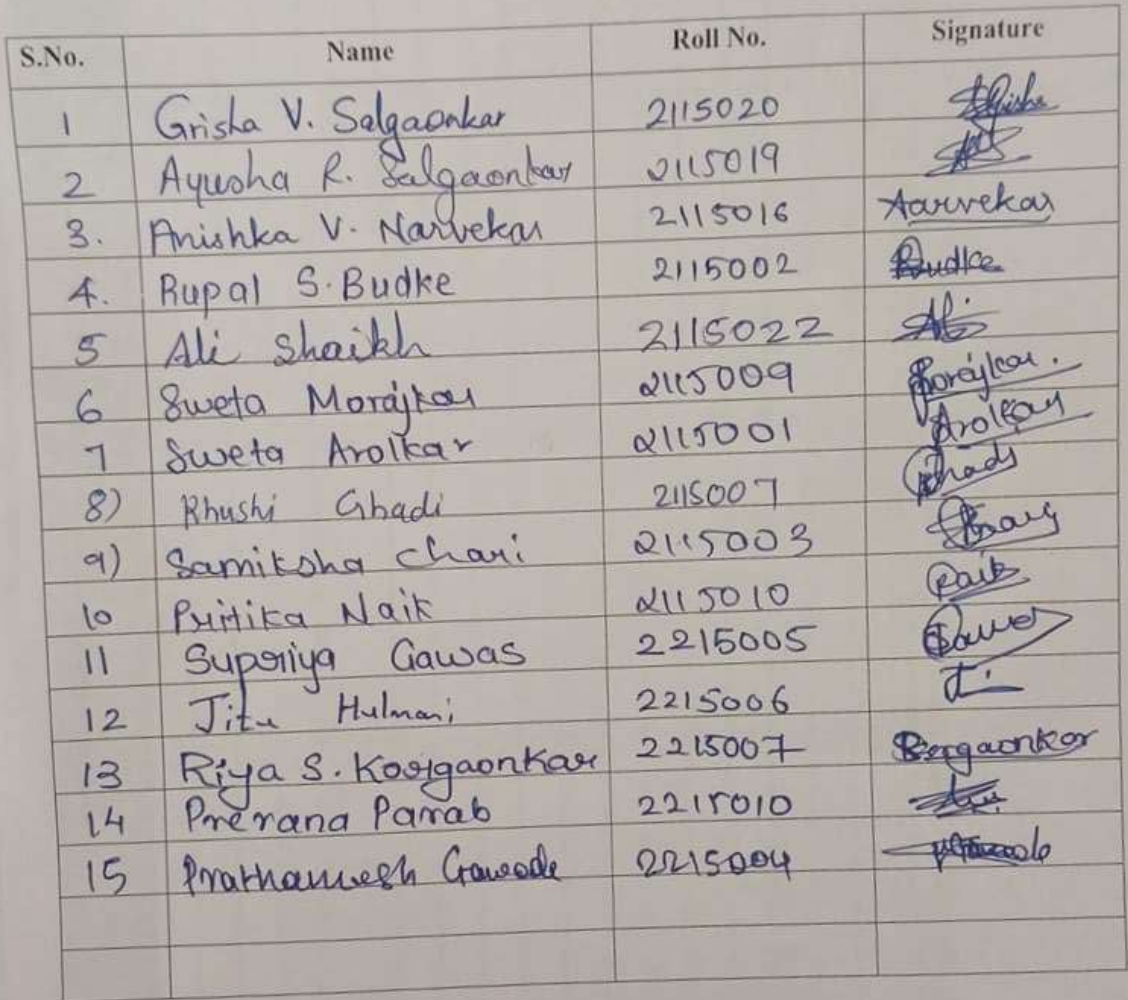 S.No. Name Roll No. Signature
1 Grisha V. Salgaonkar 2115020
2 Ayusha R. Salgaonkar 2115019
3. Anishka V. Narvekar 2115016 Aarvekar
4. Rupal S. Budke 2115002 Budke
5 Ali Shaikh 2115022 Ali
6 Sweta Morajkar 2115009
7 Sweta Arolkar 2115001 Arolkar
8) Khushi Ghadi 2115007
9) Samiksha Chari 2115003
10 Pritika Naik 2115010
11 Supriya Gawas 2215005
12 Jitu Hulmani 2215006
13 Riya S. Korgaonkar 2215007
14 Prerana Parab 2215010
15 Prathamesh Gawade 2215004